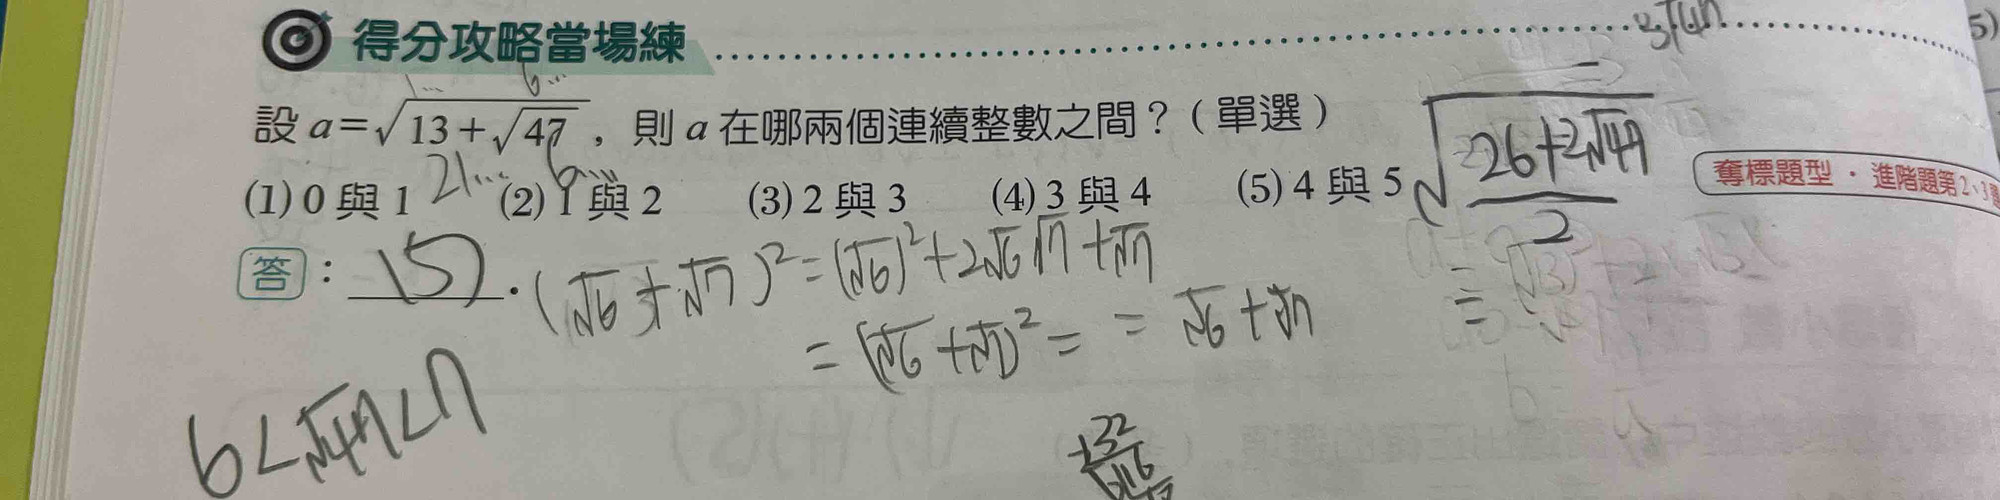 得分攻略當場練
設 a=√(13+√47)，則 a 在哪兩個連續整數之間？（單選）
(1) 0 與 1 (2) 1 與 2 (3) 2 與 3 (4) 3 與 4 (5) 4 與 5
奪標題型・進階題第2、3題
答：(5)
(√6+√7)²=(√6)²+2√6√7+√7
=(√6+√7)²= =√6+√7
6<√47<7